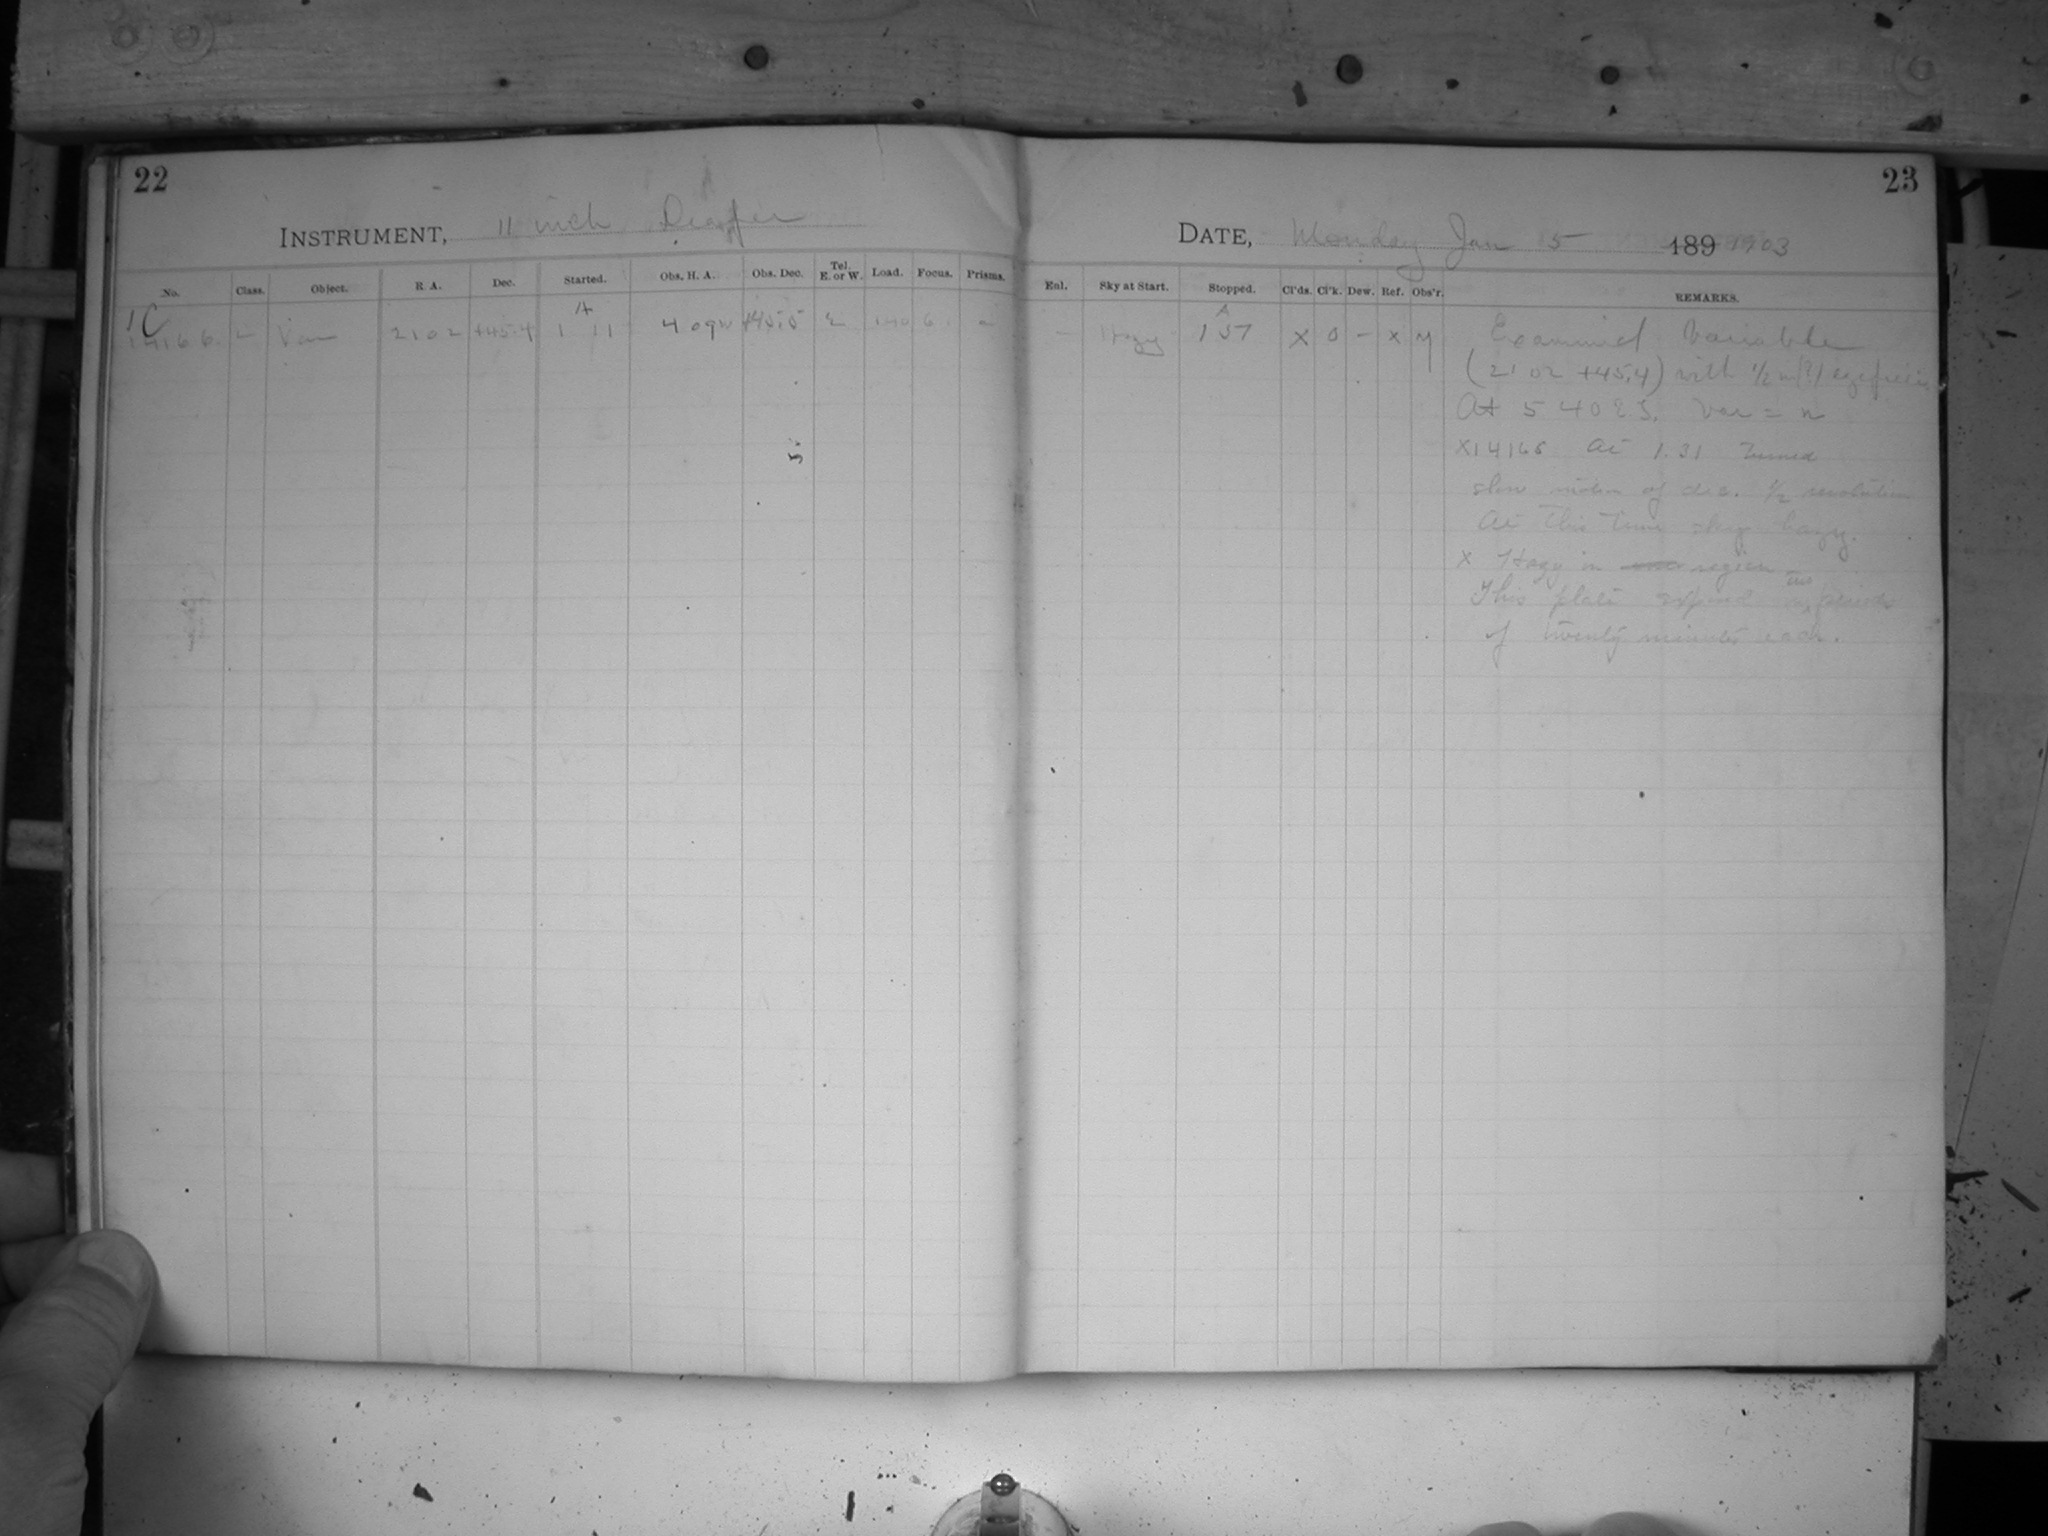 22
INSTRUMENT, 11 inch Draper
No. Class. Object. R. A. Dec. Started. Obs. H. A. Obs. Dec. Tel. E. or W. Load. Focus. Prisms.
1C A
14166 L Var 2102 +45.4 1 11 4 09w +45.5 E 140 6
23
DATE, Monday Jan 5 189 1903
Enl. Sky at Start. Stopped. Cl'ds. Cl'k. Dew. Ref. Obs'r. REMARKS.
A
— Hazy 1 57 x 0 – x M Examined Variable
(21 02 +45.4) with 1/2 in (?) eyepiece
At 5 40 E.S. Var = n
X14166 At 1.31 turned
slow motion of d.c. 1/2 revolution
At this time sky hazy.
x Hazy in region
This plate exposed two periods
of twenty minutes each.